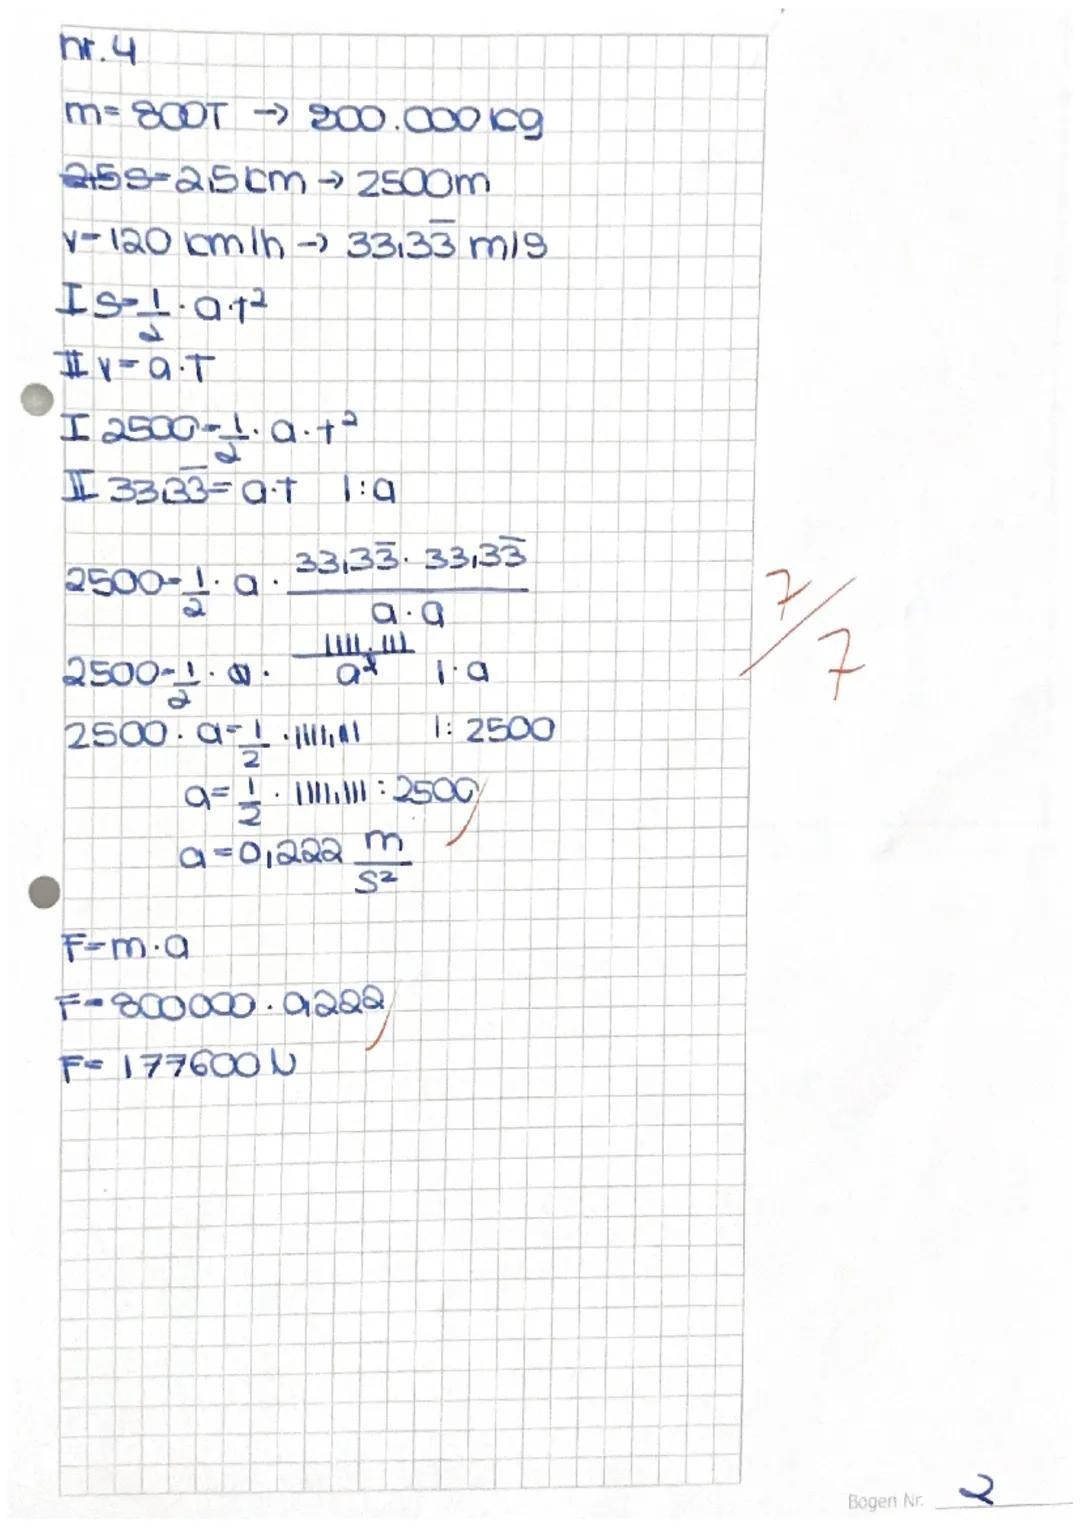 nr. 4
m = 800T → 800.000 kg
2,5 s = 2,5 km → 2500m
v = 120 km/h → 33,33̅ m/s
I s = 1/2 · a · t²
II v = a · T
I 2500 = 1/2 · a · t²
II 33,33̅ = a · t |: a
2500 = 1/2 · a · (33,33̅ · 33,33̅)/(a · a)
2500 = 1/2 · a · 1111,111/a² | · a
2500 · a = 1/2 · 1111,11 |: 2500
a = 1/2 · 1111,111 : 2500
a = 0,222 m/s²
7/7
F = m · a
F = 800000 · 0,222
F = 177600 N
Bogen Nr. 2